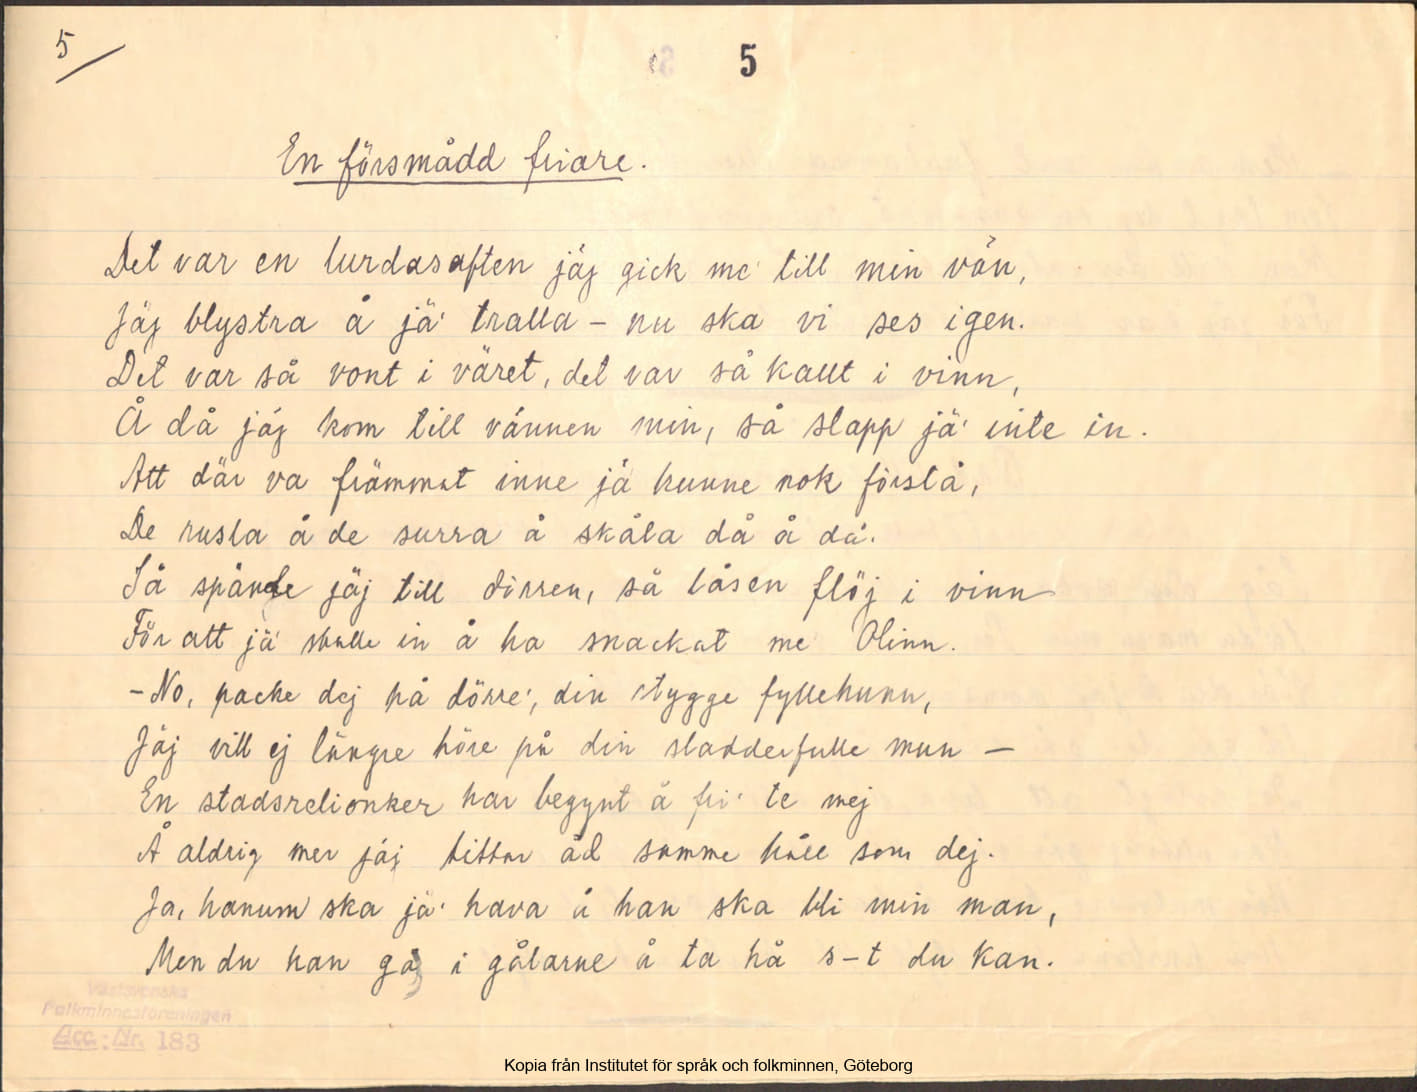 5
5
En försmådd friare.
Det var en lurdasaften jäj gick me' till min vän,
Jäj blystra å jä' tralla – nu ska vi ses igen.
Det var så vont i väret, det var så kallt i vinn,
Å då jäj kom till vännen min, så slapp jä' inte in.
Att där va främmat inne jä kunne nok förstå,
De rusla å de surra å skåla då å då.
Så spände jäj till dörren, så låsen flöj i vinn
För att jä' skulle in å ha snackat me' Olinn.
– No, packe dej på dörre', din stygge fyllehunn,
Jäj vill ej längre höre på din sladderfulle mun –
En stadsrelionker har begynt å fri' te mej
Å aldrig mer jäj tittar åd samme håll som dej.
Ja, hanum ska jä' hava å han ska bli min man,
Men du kan gå i gålarne å ta hå s–t du kan.
Västsvenska
Folkminnesföreningen
Acc. Nr. 183
Kopia från Institutet för språk och folkminnen, Göteborg